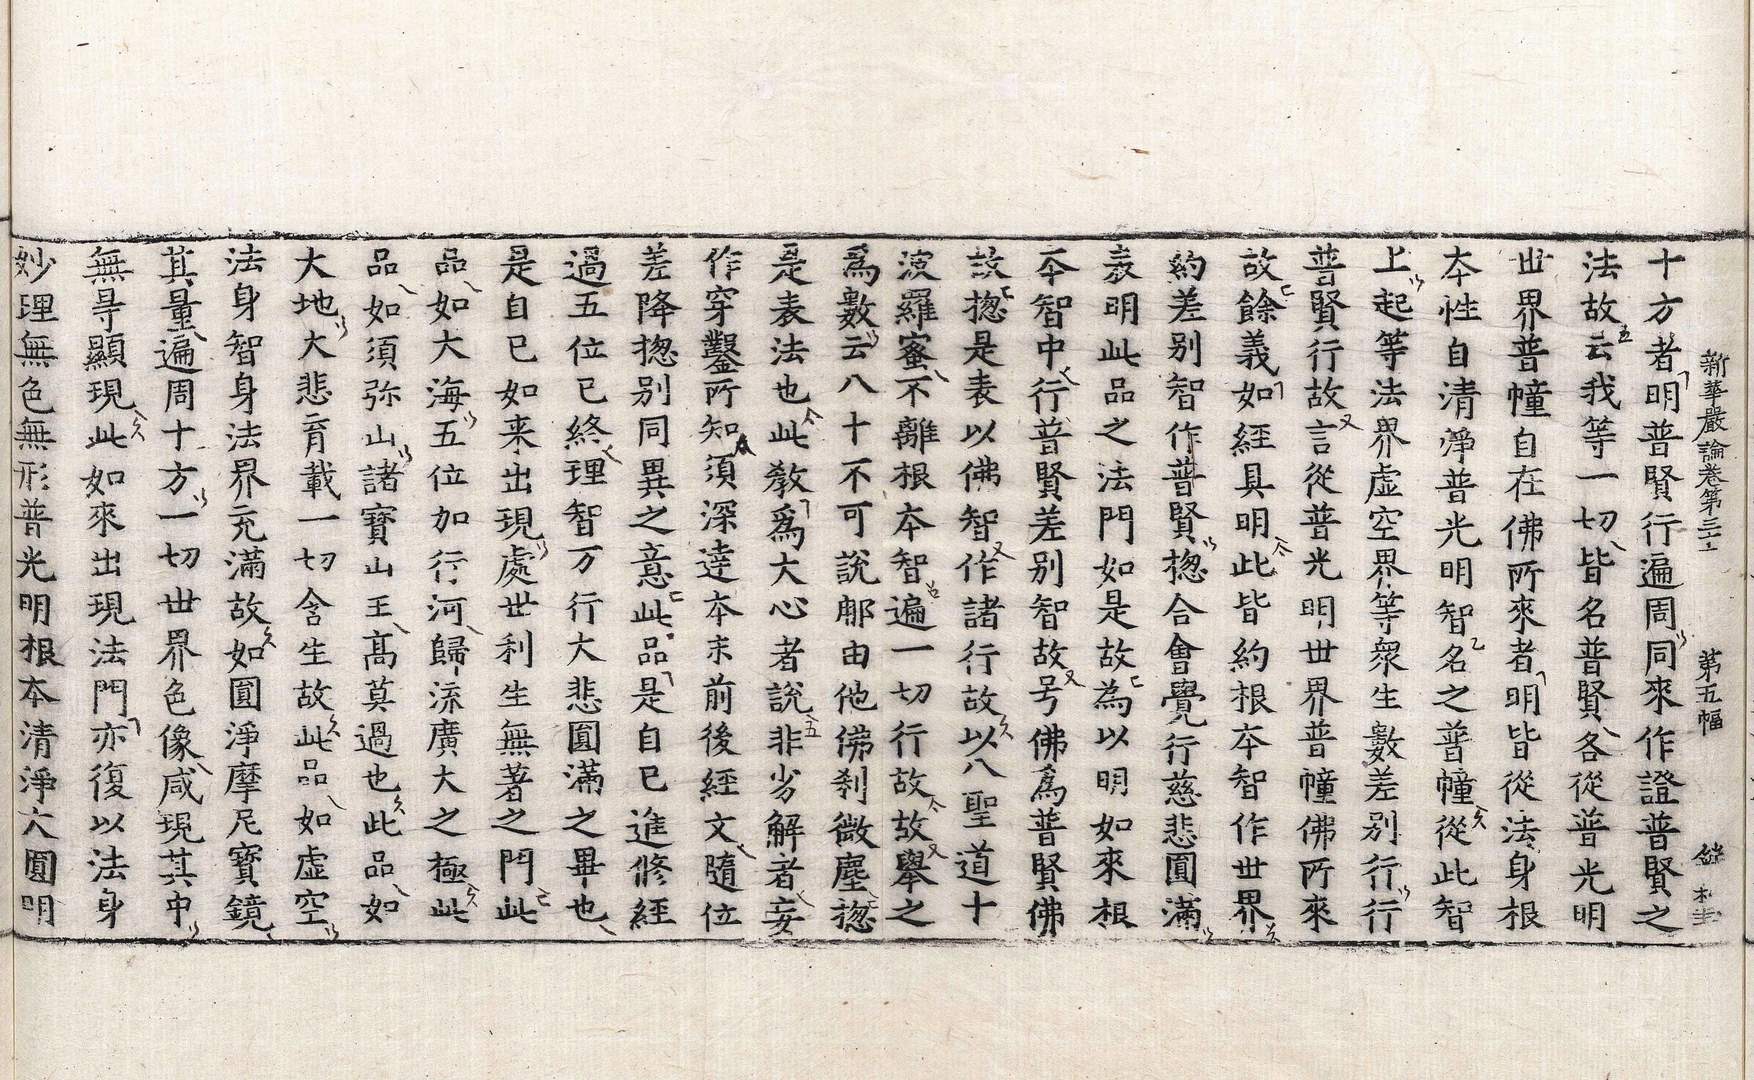 新華嚴論卷第三十 第五幅
十方者明普賢行遍周同來作證普賢之
法故云我等一切皆名普賢各從普光明
世界普幢自在佛所來者明皆從法身根
本性自清淨普光明智名之普幢從此智
上起等法界虛空界等衆生數差別行行
普賢行故言從普光明世界普幢佛所來
故餘義如經具明此皆約根本智作世界
約差别智作普賢揔合會覺行慈悲圓滿
表明此品之法門如是故為以明如來根
本智中行普賢差别智故号佛爲普賢佛
故揔是表以佛智作諸行故以八聖道十
波羅蜜不離根本智遍一切行故故舉之
爲數云八十不可說那由他佛刹微塵揔
是表法也此教爲大心者說非劣解者妄
作穿鑿所知須深達本末前後經文隨位
差降揔別同異之意此品是自已進修經
過五位已終理智万行大悲圓滿之畢也
是自已如来出現處世利生無著之門此
品如大海五位加行河歸流廣大之極此
品如須弥山諸寶山王高莫過也此品如
大地大悲育載一切含生故此品如虛空
法身智身法界充滿故如圓淨摩尼寶鏡
其量遍周十方一切世界色像咸現其中
無㝵顯現此如來出現法門亦復以法身
妙理無色無形普光明根本清淨大圓明